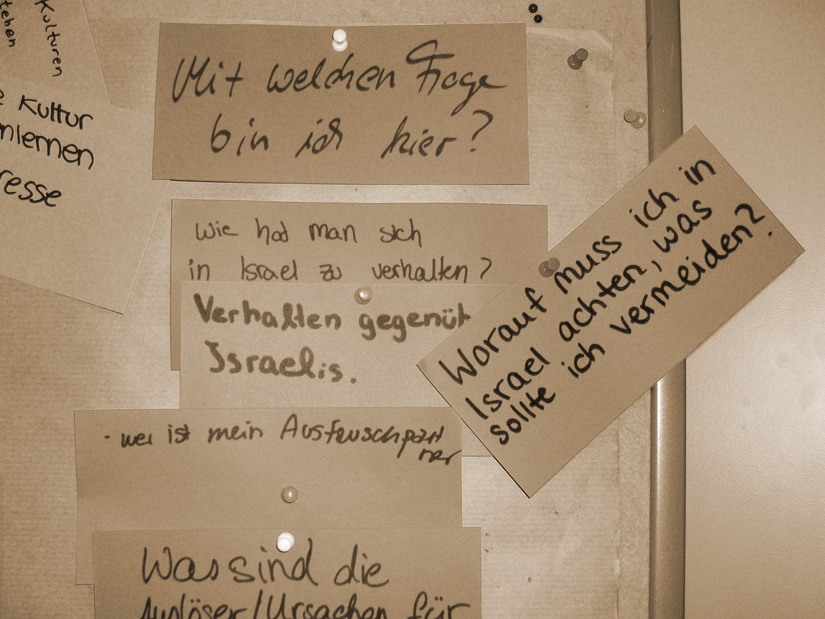 Kulturen
Kultur
resse
Mit welchen Frage
bin ich hier?
Wie hat man sich
in Israel zu verhalten?
Verhalten gegenüb
Israelis.
Worauf muss ich in
Israel achten, was
sollte ich vermeiden?
- wer ist mein Austauschpart
ner
Was sind die
Auslöser/Ursachen für